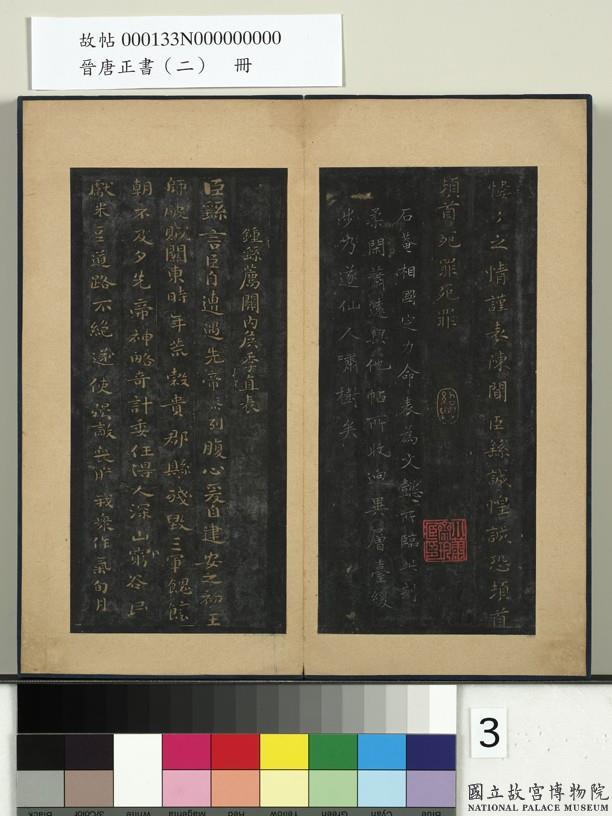 故帖 000133N000000000
晉唐正書（二）　冊
之情謹表陳聞臣繇誠惶誠恐頓首
頓首死罪死罪
石菴相國定力命表為文所臨此刻
柔閑蕭遠與他帖所收迥異層臺緩
步乃遂仙人嘯樹矣
鍾繇薦關內侯季直表
臣繇言臣自遭遇先帝列腹心爰自建安之初王
師破賊關東時年荒穀貴郡縣殘毀三軍餽饟
朝不及夕先帝神略奇計委任得人深山窮谷民
獻米豆道路不絕遂使強敵喪膽我眾作氣旬月
3
國立故宮博物院
NATIONAL PALACE MUSEUM
Black
3/Color
White
Magenta
Red
Yellow
Green
Cyan
Blue